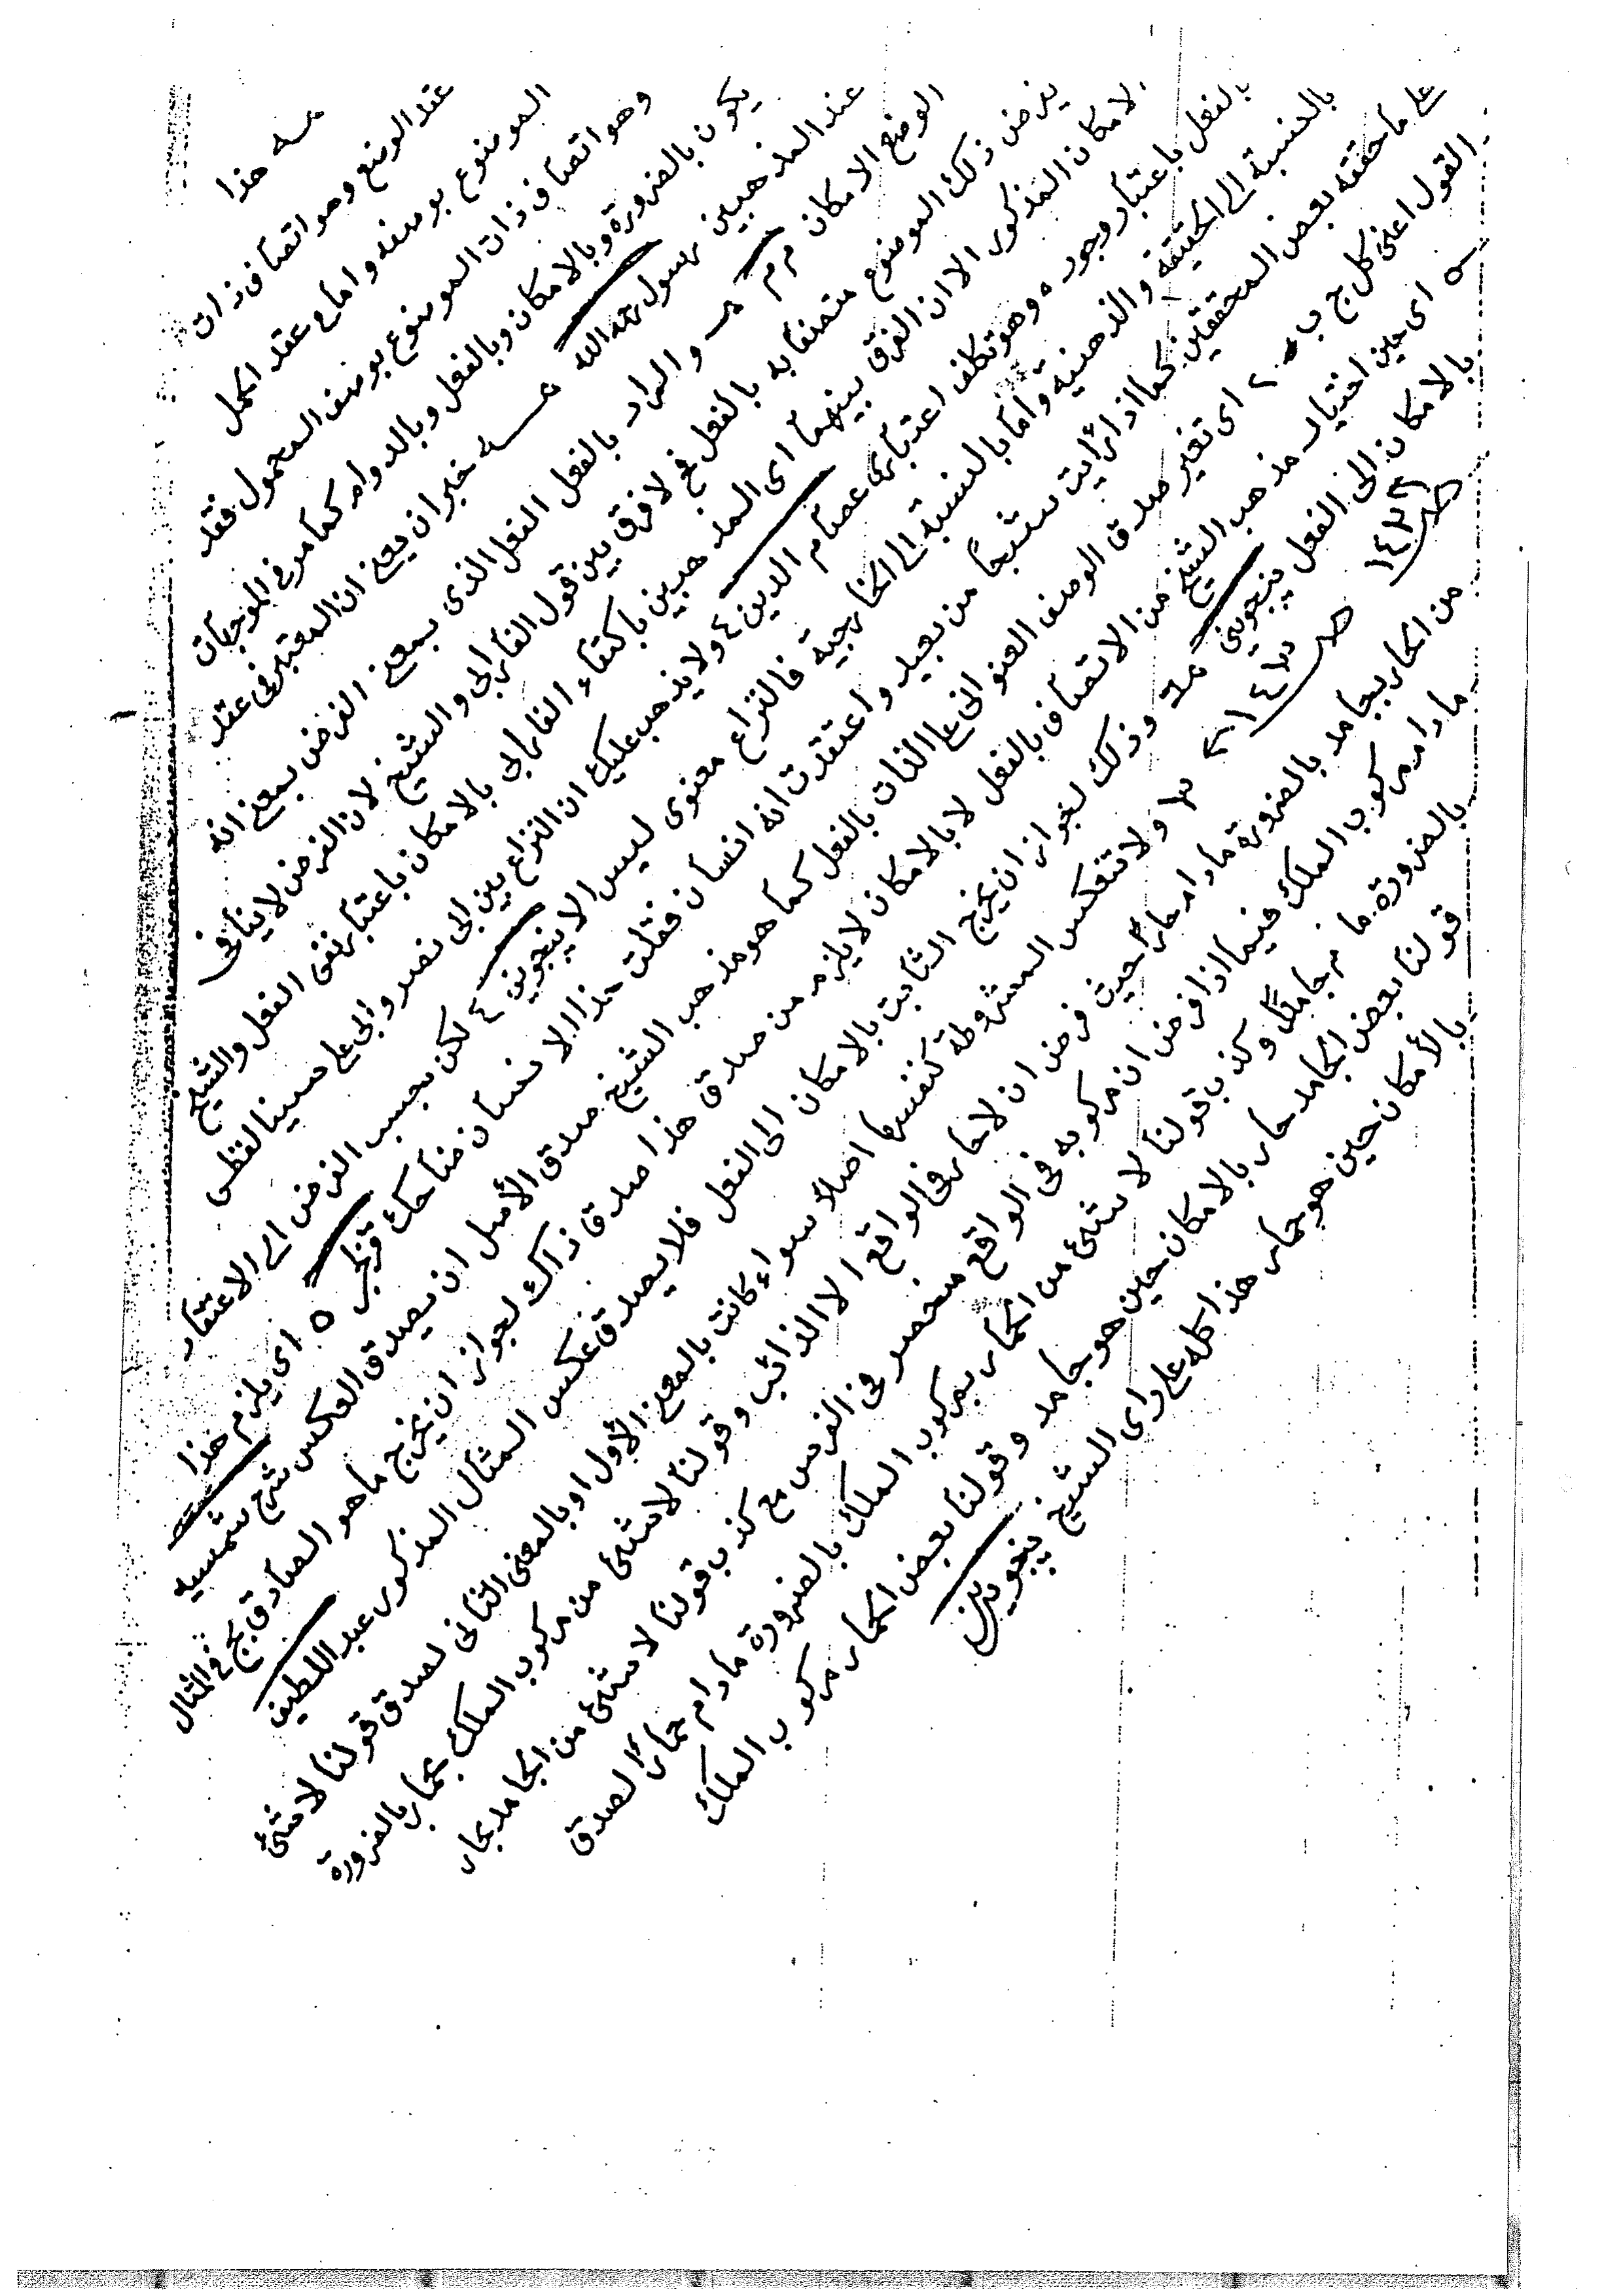 هذا
عقد الوضع وهو اتصاف ذات
الموضوع بوصفه واما عقد الحمل
وهو اتصاف ذات الموضوع بوصف المحمول فقد
يكون بالضرورة وبالامكان وبالفعل وبالدوام كما مر في الموجهات
عند المذهبين رسول رحمه الله خبر ان يعني ان المعتبر في عقد
الوضع الامكان م م والمراد بالفعل الفعل الذى بمعنى الفرض بمعنى انه
يفرض ذلك الموضوع متصفا به بالفعل فح لا فرق بين قول الفارابى والشيخ لان الفرض لا ينافى
الامكان المذكور الا ان الفرق بينهما اى المذهبين باكتفاء الفارابى بالامكان باعتبار نفس الفعل والشيخ
بالفعل باعتبار وجوده وهو تكلف اعتبارى عصام الدين ٤ ولا يذهب عليك ان النزاع بين ابى نصر وابى على سينا لفظى
بالنسبة الى الحقيقة والذهنية واما بالنسبة الى الخارجية فالنزاع معنوى ليس الا پنجوينى ٤ لكن بحسب الفرض اى الاعتقاد
على ما حققه بعض المحققين كما اذا رأيت شبحا من بعيد واعتقدت انه انسان فقلت هذا الانسان ضاحك قزلجى ٥ اى يلزم هذا
القول اعنى كل ج ب ٢ اى تغير صدق الوصف العنوانى على الذات بالفعل كما هو مذهب الشيخ صدق الأصل ان يصدق العكس شرح شمسيه
اى حين اختيار مذهب الشيخ من الاتصاف بالفعل لا بالامكان لا يلزم من صدق هذا صدق ذاك لجواز ان يخرج ما هو الصادق بج فى المثال
بالامكان الى الفعل پنجوينى وذلك لجواز ان يخرج الثابت بالامكان الى الفعل فلا يصدق عكس المثال المذكور عبد اللطيف
صـ١٤٣ ولا تنعكس المشروطة كنفسها اصلا سواء كانت بالمعنى الأول او بالمعنى الثانى لصدق قولنا لا شئ
من الحار بجامد بالضرورة ما دام حارا حيث فرض ان لا حار فى الواقع الا الذائب وقولنا لا شئ من مركوب الملك بحمار بالضرورة
ما دام مركوب الملك فيما اذا فرض ان مركوبه فى الواقع منحصر فى الفرس مع كذب قولنا لا شئ من الجامد بحار
بالضرورة ما دام جامدا وكذب قولنا لا شئ من الحمار بمركوب الملك بالضرورة ما دام حمارا لصدق
قولنا بعض الجامد حار بالامكان حين هو جامد وقولنا بعض الحمار مركوب الملك
بالأمكان حين هو حمار هذا كله على رأى الشيخ پنجوينى